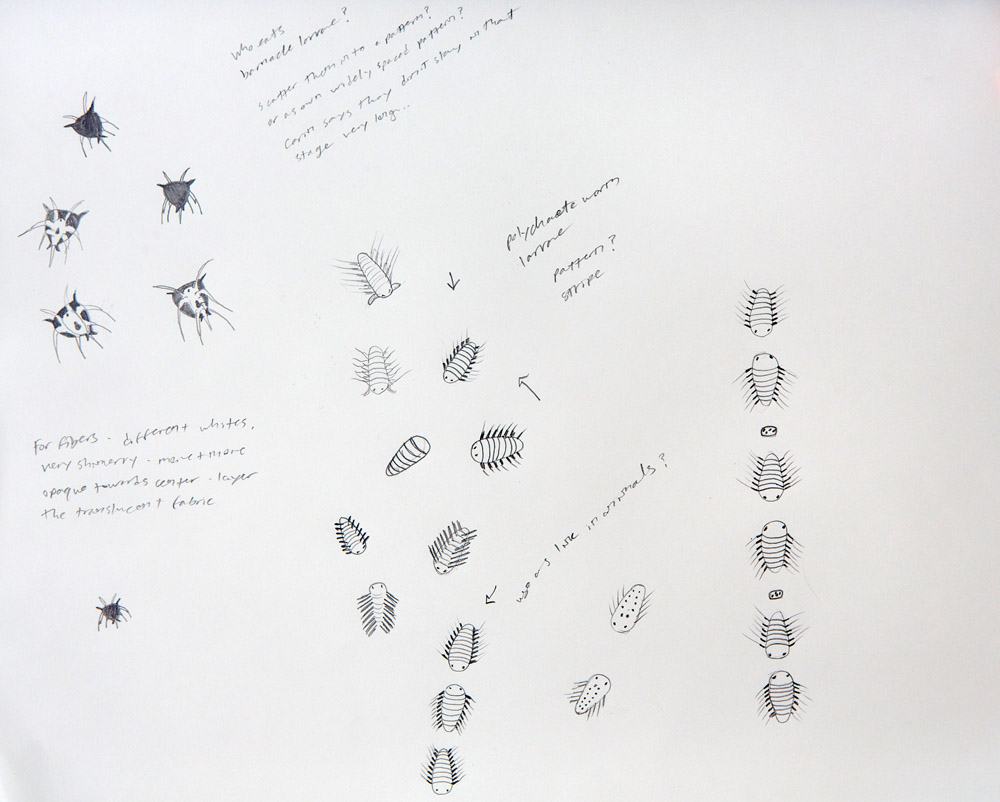 who eats
barnacle larvae?
scatter them into a pattern?
or as own widely spaced pattern?
says they don't stay in that
stage very long...
polychaete worm
larvae
pattern?
stripe
For fibers - different whites,
very shimmery - more + more
opaque towards center - layer
the translucent fabric
in animals?